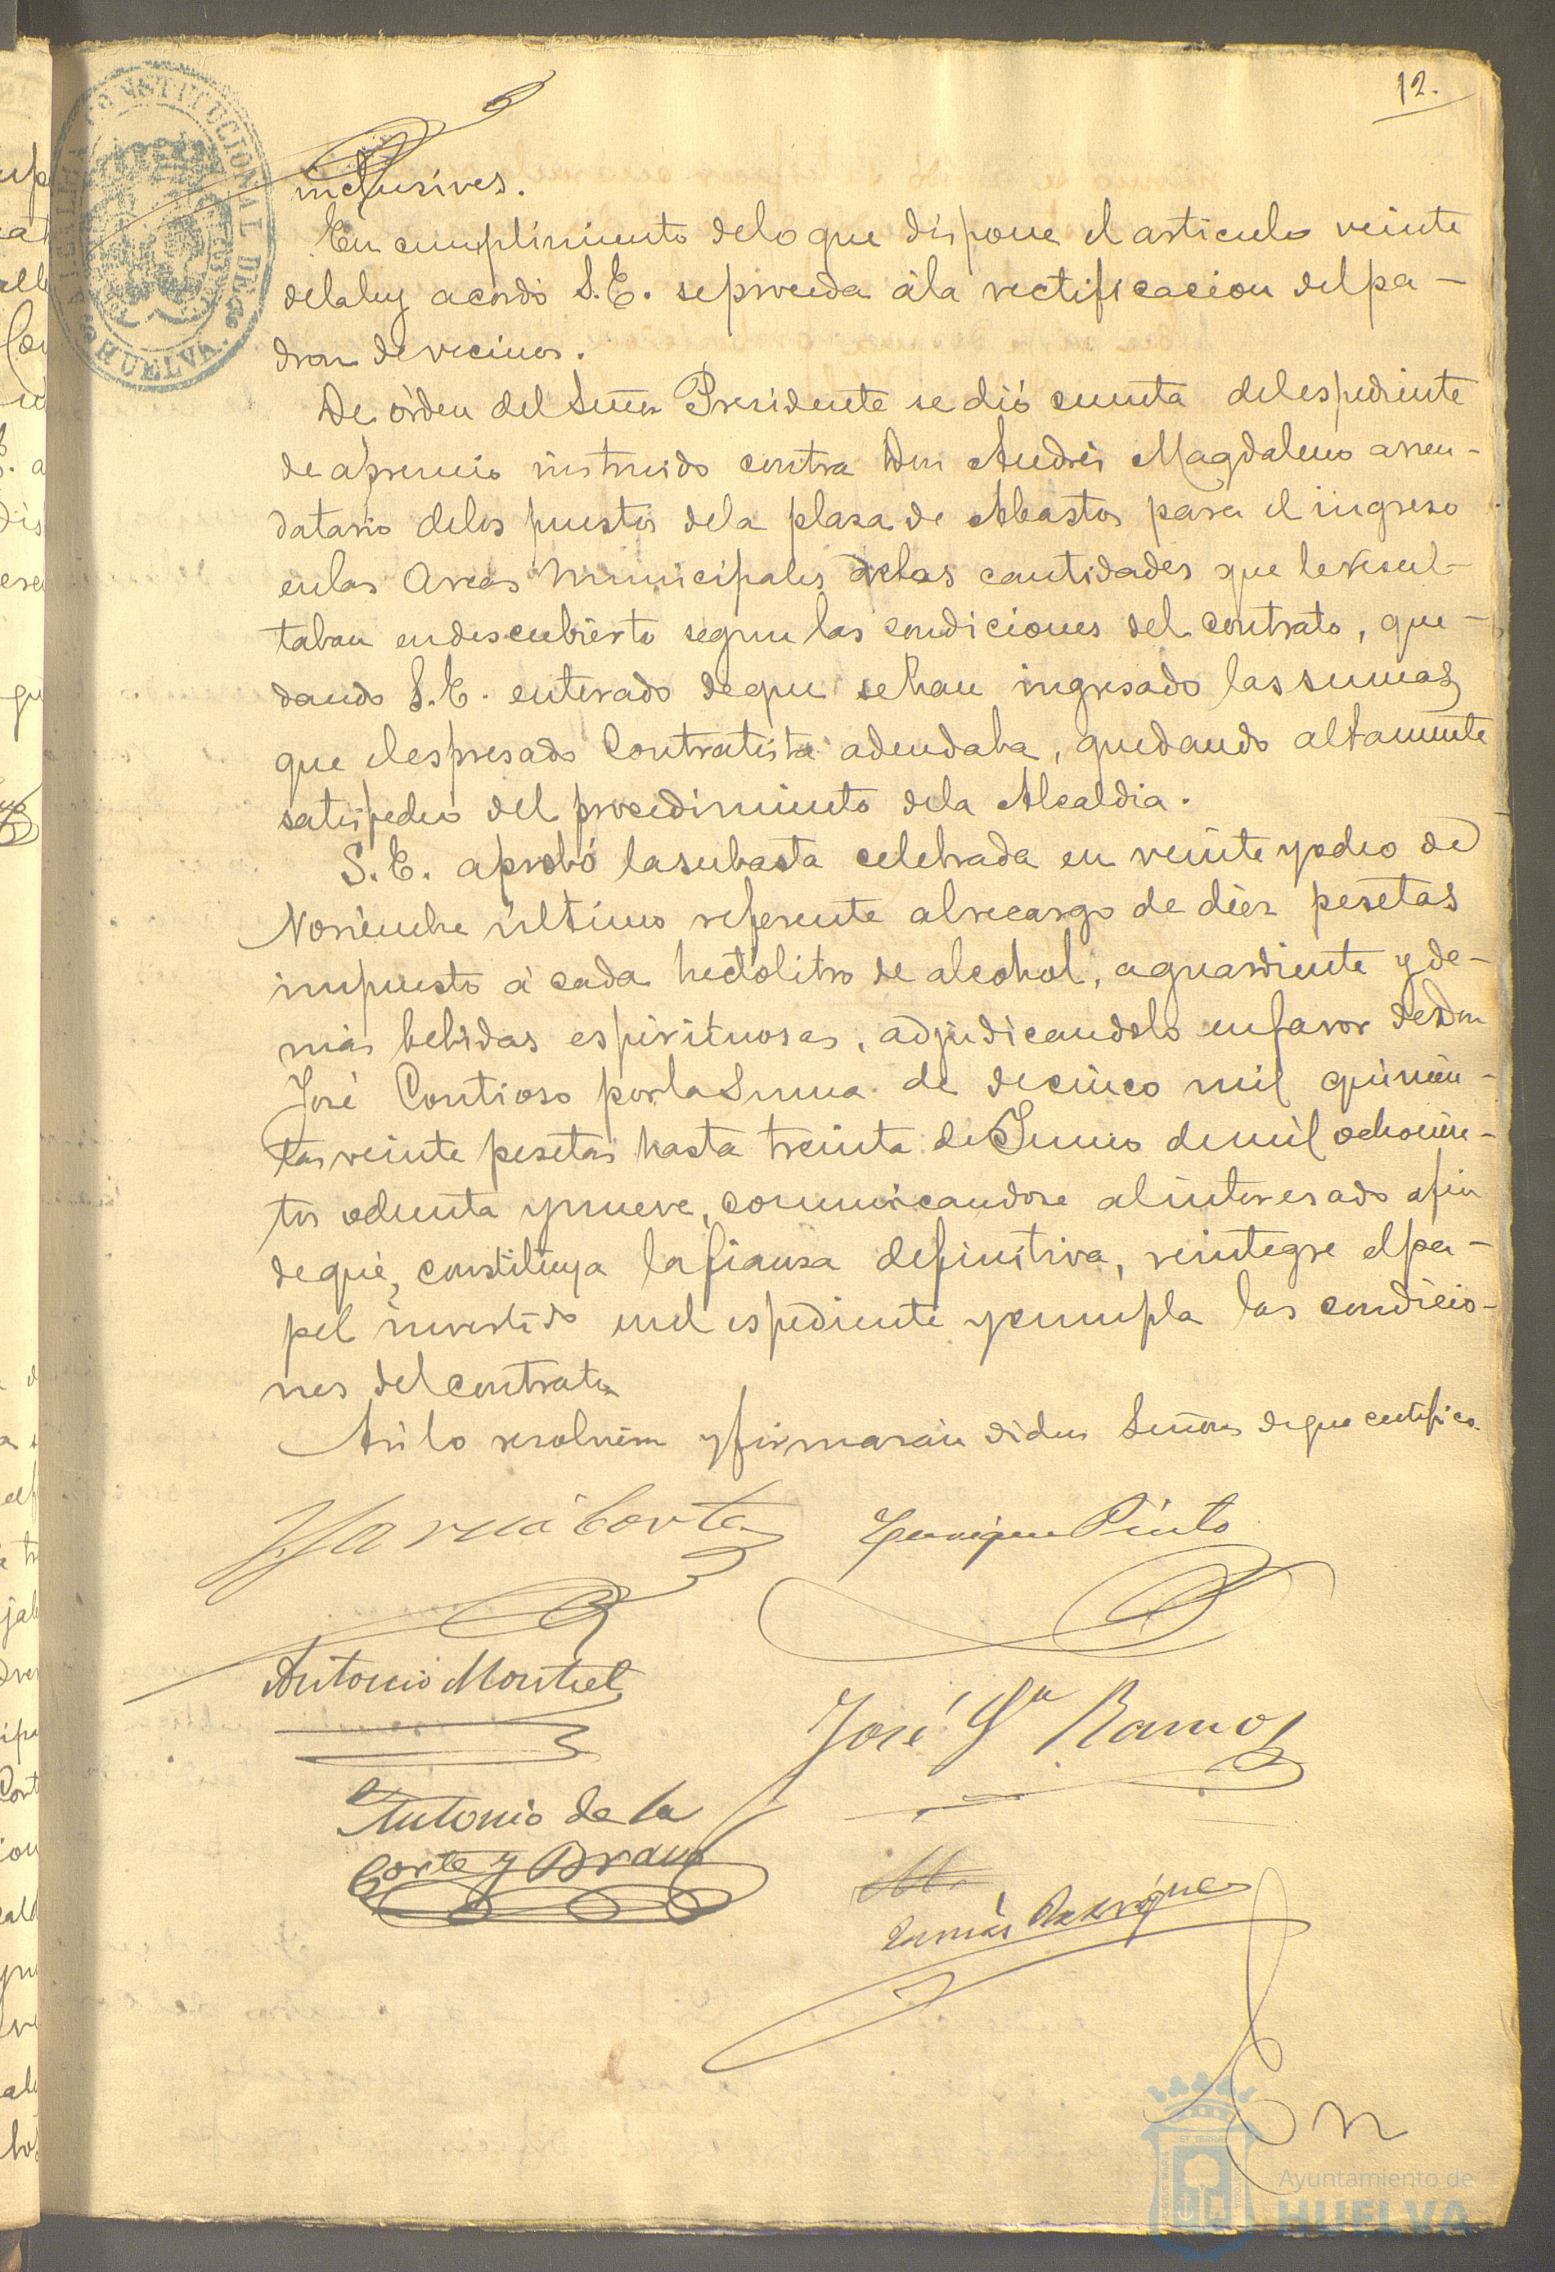 12.
ALCALDIA CONSTITUCIONAL DE
HUELVA.
inclusives.
En cumplimiento delo que dispone el articulo veinte
dela ley acordó S.E. se proceda ála rectificacion del pa-
dron de vecinos.
De órden del Señor Presidente se dió cuenta del espediente
de apremio instruido contra Don Andrés Magdaleno arren-
datario delos puestos dela plaza de Abastos para el ingreso
enlas Arcas Municipales delas cantidades que le resul-
taban en descubierto segun las condiciones del contrato, que-
dando S.E. enterado de que se han ingresado las sumas
que el espresado Contratista adeudaba, quedando altamente
satisfecho del procedimiento dela Alcaldia.
S.E. aprobó la subasta celebrada en veinte y ocho de
Noviembre último referente al recargo de diez pesetas
impuesto á cada hectólitro de alcohol, aguardiente y de-
más bebidas espirituosas, adjudicandolo en favor de Don
José Contioso por la suma de cinco mil quinien-
tas veinte pesetas hasta treinta de Junio de mil ochocien-
tos ochenta y nueve, comunicandose al interesado á fin
de que, constituya la fianza definitiva, reintegre el pa-
pel invertido en el espediente y cumpla las condicio-
nes del contrato
Asi lo resolvieron y firmarán dichos Señores de que certifico.
J. Garcia Cortes
Enrique Pinto
Antonio Montiel
José Gª Ramos
Antonio de la
Corte y Bravo
M.
Tomás Rodriguez
En
Ayuntamiento de
HUELVA